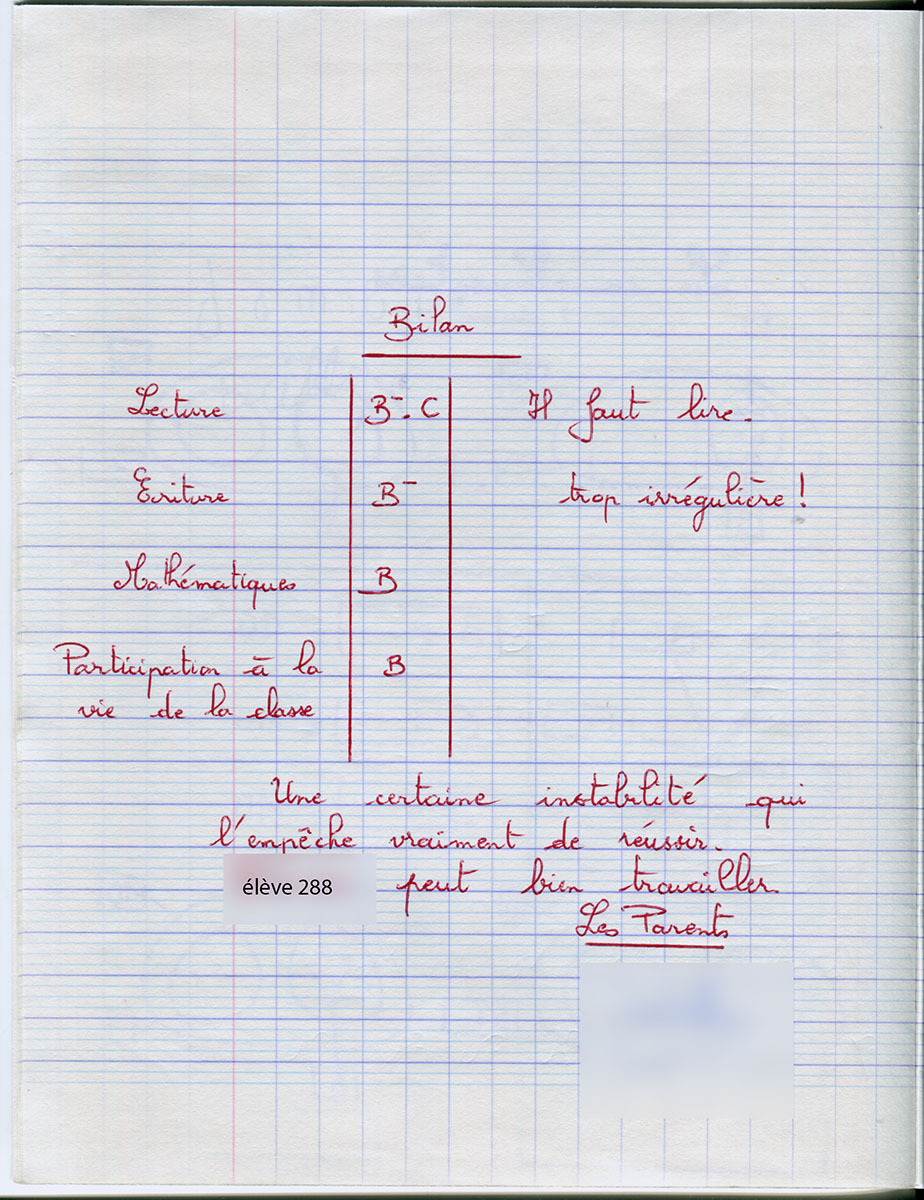 Bilan
Lecture B⁻. C Il faut lire.
Ecriture B⁻ trop irrégulière !
Mathématiques B
Participation à la B
vie de la classe
Une certaine instabilité qui
l'empêche vraiment de réussir.
élève 288 peut bien travailler.
Les Parents